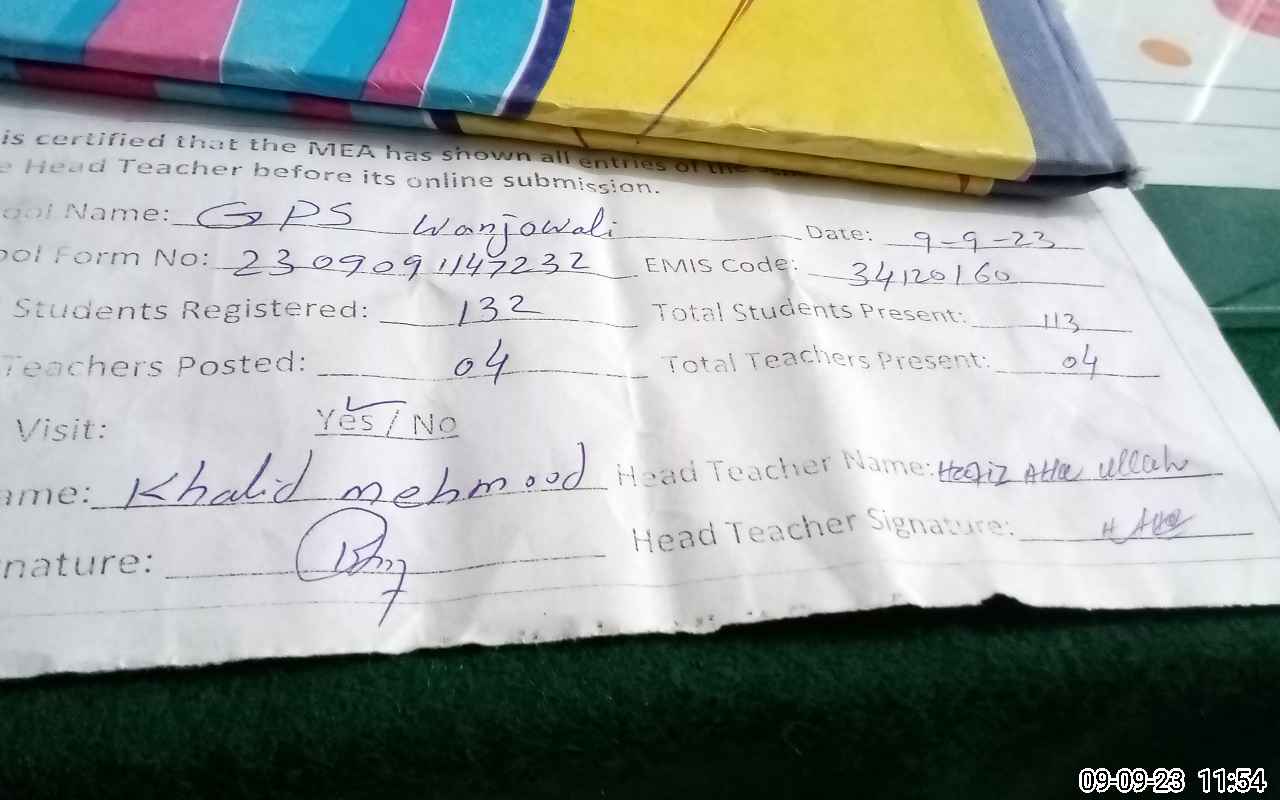 is certified that the MEA has shown all entries of the
e Head Teacher before its online submission.
ool Name: GPS Wanjowali Date: 9-9-23
ool Form No: 230909114​7232 EMIS Code: 34120160
Students Registered: 132 Total Students Present: 113
Teachers Posted: 04 Total Teachers Present: 04
Visit: Yes / No
ame: Khalid mehmood Head Teacher Name: Hafiz Atta ullah
nature: Head Teacher Signature: H Atta
09-09-23 11:54